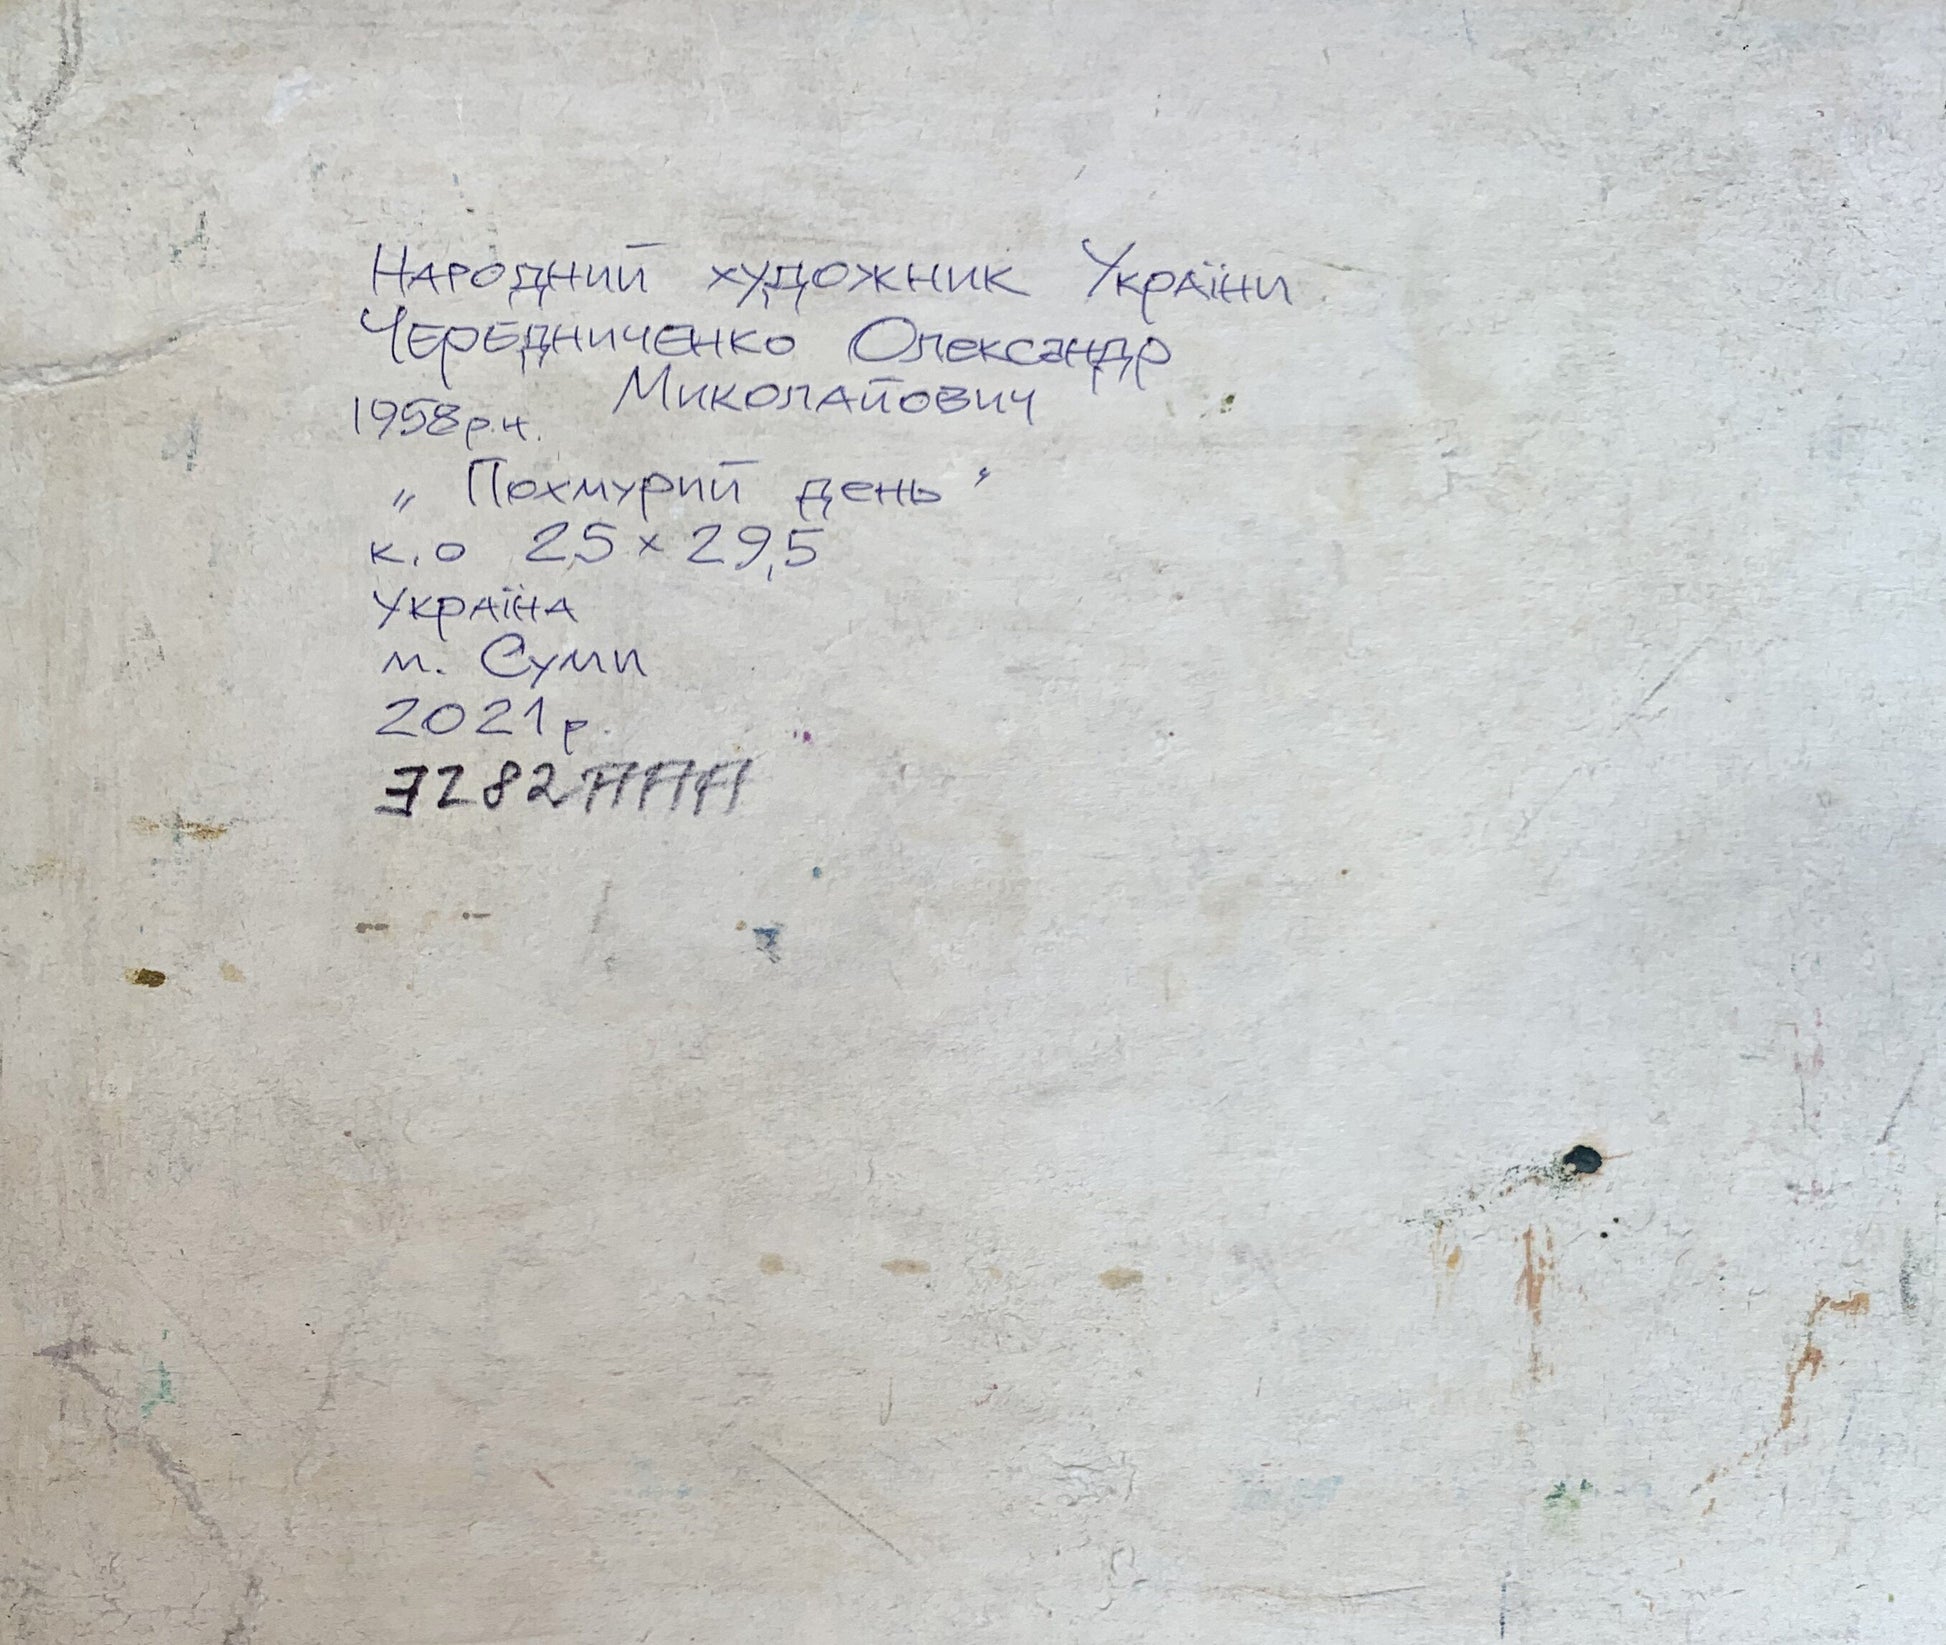 Народний художник України
Чередниченко Олександр
Миколайович
1958р.н.
„Похмурий день"
к.о 25 × 29,5
Україна
м. Суми
2021р.